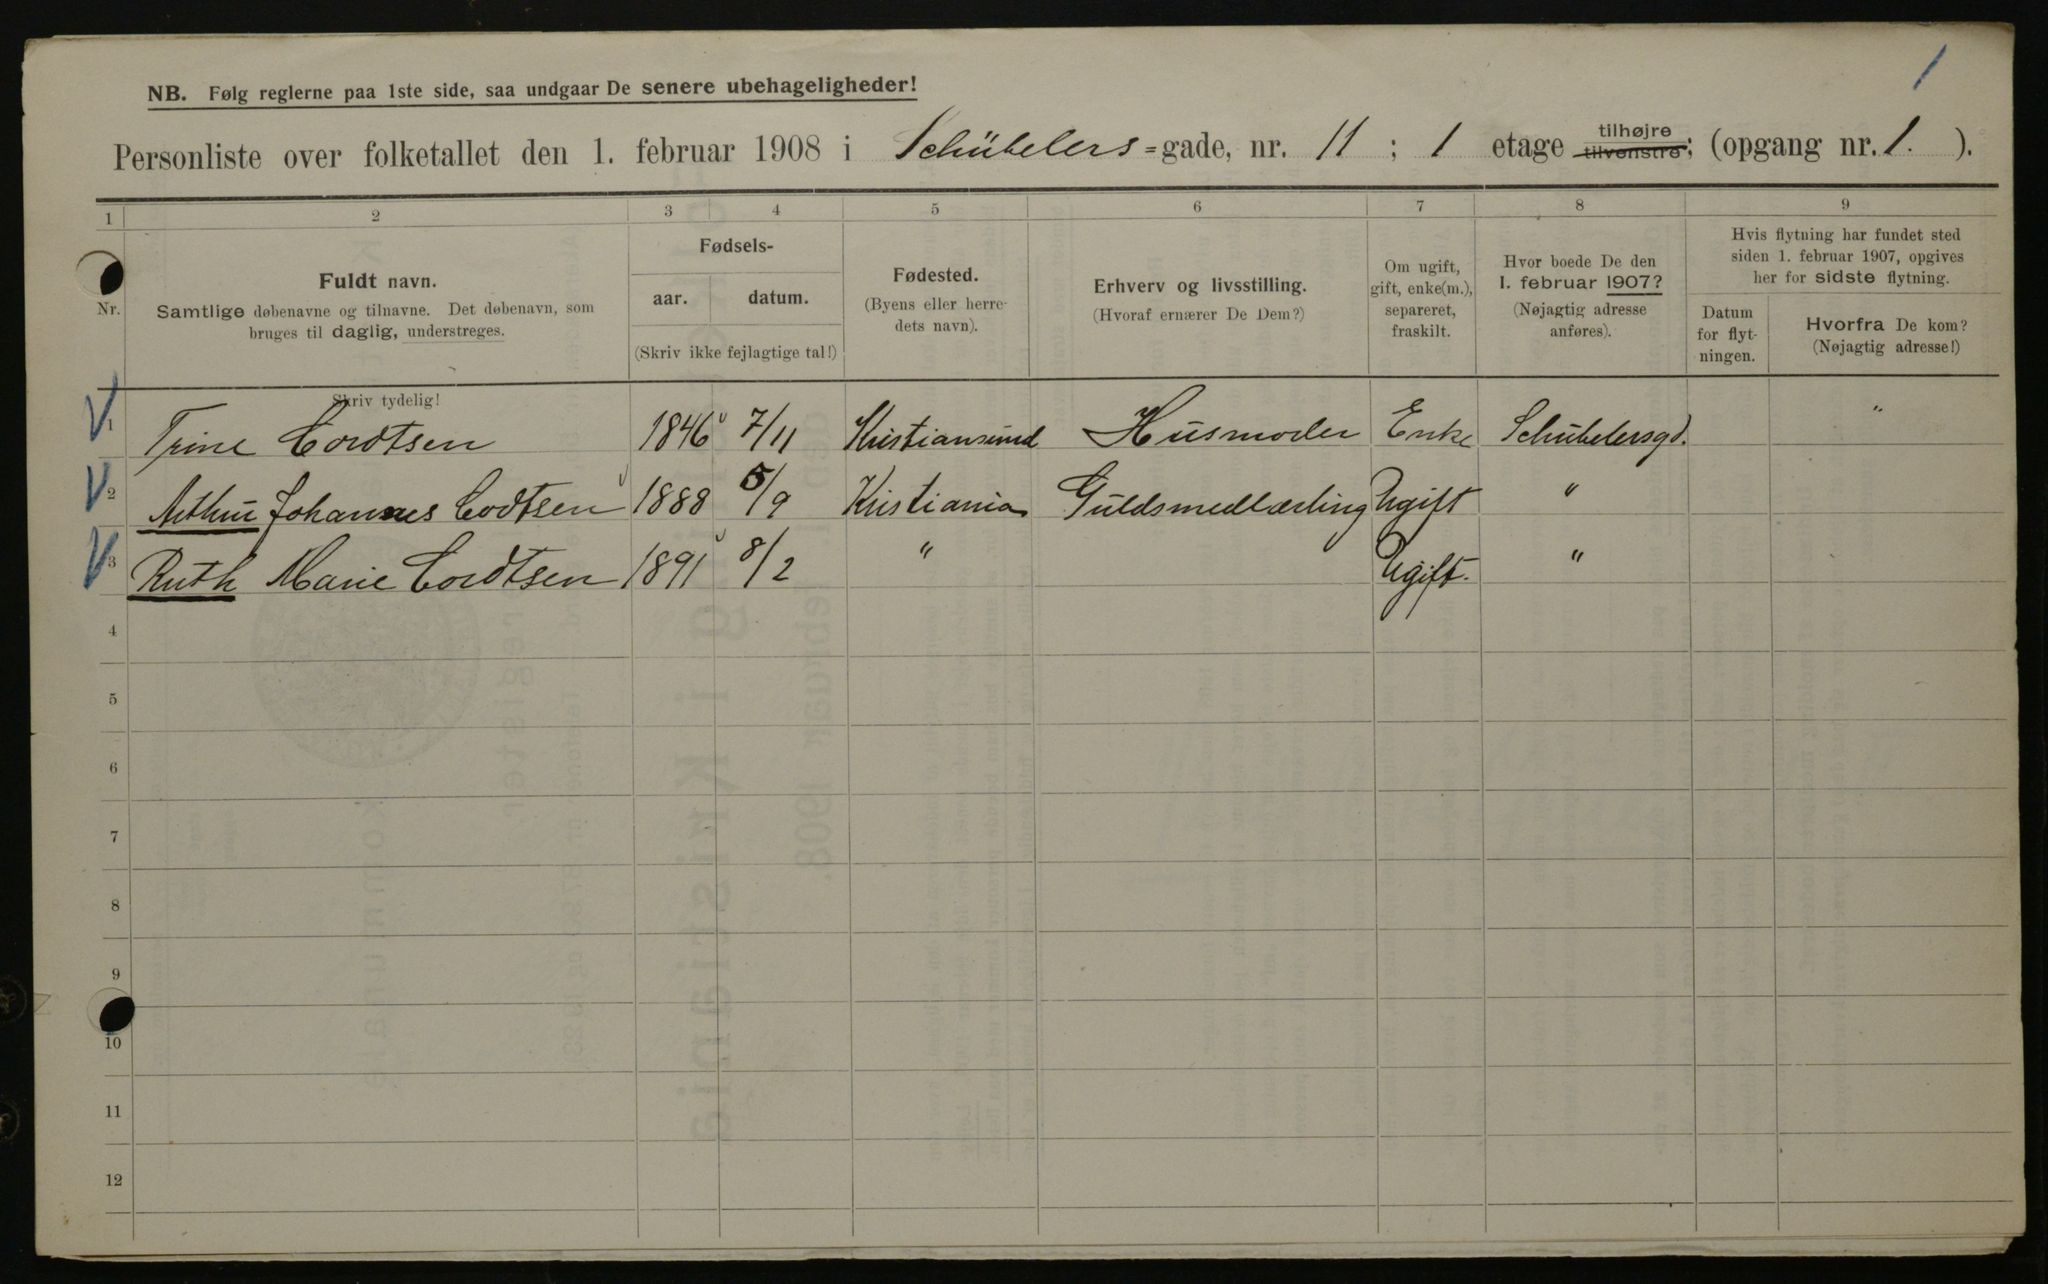 1
NB. Følg reglerne paa 1ste side, saa undgaar De senere ubehageligheder!
Personliste over folketallet den 1. februar 1908 i Schübelers=gade, nr. 11 ; 1 etage tilhøjre tilvenstre; (opgang nr. 1. ).
1 2 3 4 5 6 7 8 9
Nr.
Fuldt navn.
Samtlige døbenavne og tilnavne. Det døbenavn, som
bruges til daglig, understreges.
Skriv tydelig!
Fødsels-
aar. datum.
(Skriv ikke fejlagtige tal!)
Fødested.
(Byens eller herre-
dets navn).
Erhverv og livsstilling.
(Hvoraf ernærer De Dem?)
Om ugift,
gift, enke(m.),
separeret,
fraskilt.
Hvor boede De den
1. februar 1907?
(Nøjagtig adresse
anføres).
Hvis flytning har fundet sted
siden 1. februar 1907, opgives
her for sidste flytning.
Datum
for flyt-
ningen.
Hvorfra De kom?
(Nøjagtig adresse!)
1 Trine Cordtsen 1846 7/11 Kristiansund Husmoder Enke Schubelersgd. "
2 Arthur Johannes Cordtsen 1888 5/9 Kristiania Guldsmedlærling Ugift "
3 Ruth Marie Cordtsen 1891 8/2 " Ugift. "
4
5
6
7
8
9
10
11
12